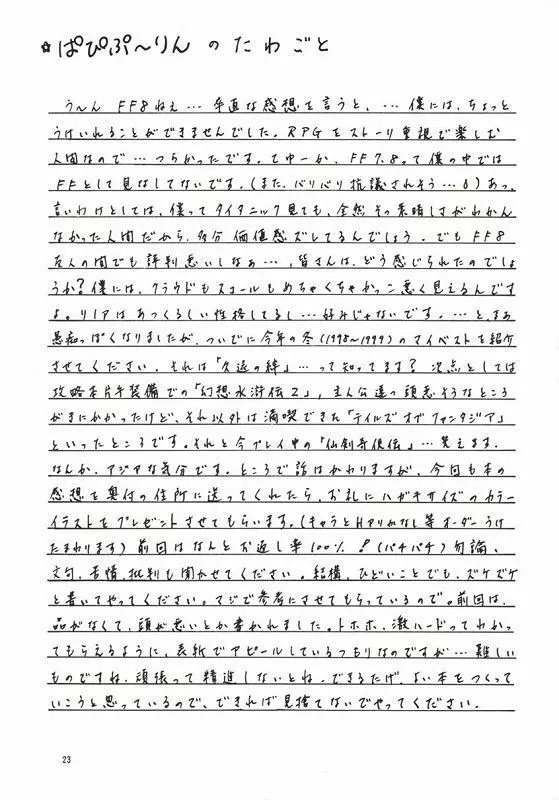 ☆ぱぴぷ～りんのたわごと
う～ん FF8ねぇ…率直な感想を言うと、…僕には、ちょっと
うけいれることができませんでした。RPGをストーリ重視で楽しむ
人間なので…つらかったです。てゆーか、FF7.8って僕の中では
FFとして見なしてないです。(また、バリバリ抗議されそう…)あっ、
言いわけとしては、僕ってタイタニック見ても、全然その素晴しさがわかん
なかった人間だから、多分価値感ズレてるんでしょう。でもFF8
友人の間でも評判悪いしなぁ…、皆さんは、どう感じられたのでしょ
うか?僕には、クラウドもスコールもめちゃくちゃかっこ悪く見えるんです
よ。リノアはあつくるしい性格してるし…好みじゃないです。…と、まぁ
愚痴っぽくなりましたが、ついでに今年の冬(1998～1999)のマイベストを紹介
させてください。それは「久遠の絆」…って知ってます?次点としては
攻略本片手装備での「幻想水滸伝2」、主人公達の頭悪そうなところ
がきにかかったけど、それ以外は満喫できた「テイルズオブファンタジア」
といったところです。それと今プレイ中の「仙剣奇侠伝」…笑えます。
なんか、アジアな気分です。ところで話はかわりますが、今回も本の
感想を奥付の住所に送ってくれたら、お礼にハガキサイズのカラー
イラストをプレゼントさせてもらいます。(キャラとHアリかなし等オーダーうけ
たまわります)前回はなんとお返し率100%!(パチパチ)勿論、
文句、苦情、批判も聞かせてください。結構、ひどいことでも、ズケズケ
と書いてやってください。マジで参考にさせてもらっているので。前回は、
品がなくて、頭が悪いとか書かれました。トホホ、激ハードってわかっ
てもらえるように、表紙でアピールしているつもりなのですが…難しい
ものですね。頑張って精進しないとね。できるだけ、よい本をつくって
いこうと思っているので、できれば見捨てないでやってください。
23